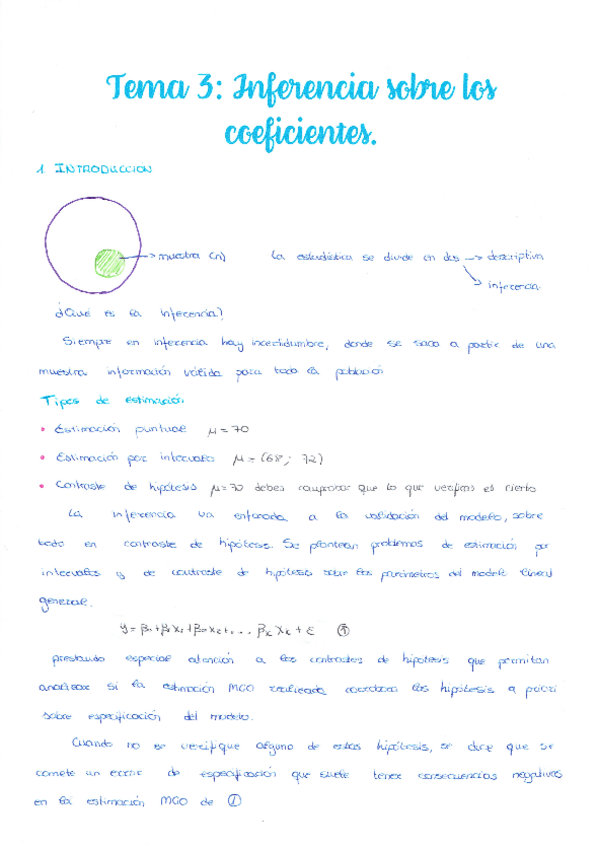 Tema 3: Inferencia sobre los
coeficientes.
1 INTRODUCCIÓN
→ muestra (n) La estadística se divide en dos → descriptiva
inferencia.
¿Qué es la inferencia?
Siempre en inferencia hay incertidumbre, donde se saca a partir de una
muestra información válida para toda la población
Tipos de estimación
• Estimación puntual μ = 70
• Estimación por intervalo μ = (68 ; 72)
• Contraste de hipótesis μ=70 debes comprobar que lo que verificas es cierto
La inferencia va enfocada a la validación del modelo, sobre
todo en contraste de hipótesis. Se plantean problemas de estimación por
intervalos y de contraste de hipótesis sobre los parámetros del modelo lineal
general.
y = β1 + β2 x2 + ... βk xk + ε ①
prestando especial atención a los contrastes de hipótesis que permitan
analizar si la estimación MCO realizada las hipótesis a priori
sobre especificación del modelo.
Cuando no se verifique alguno de estas hipótesis, se dice que se
comete un error de especificación que suele tener consecuencias negativas
en la estimación MCO de ①